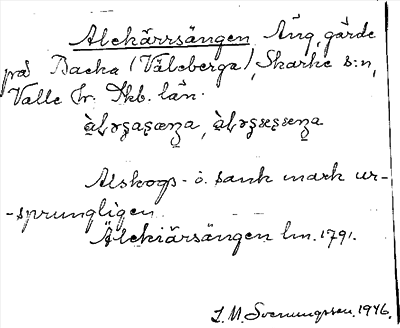 Alekärrsängen Äng, gärde
på Backa (Väleberga), Skarke s:n,
Valle hr. Skb. län.
Alskogs- o. sank mark ur-
-sprungligen.
Älekiärsängen lm. 1791.
L. M. Svenungsson. 1946.